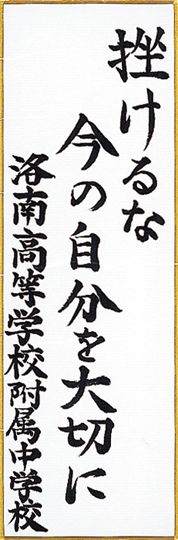 挫けるな
今の自分を大切に
洛南高等学校附属中学校